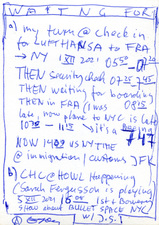 WAITING FOR
a) my turn @ check in
for LUFTHANSA to FRA
→ NY 1 XII 2021 05
THEN security check 07
THEN waiting for boarding
THEN in FRA (I was
late, now plane to NYC is late
10 → 11 it's a
#47
NOW 1408 US NY TIME
@ immigration / customs JFK
b) CHC @ HOWL Happening
(Sarah Ferguson is playing
5 XII 2021 6 1st & Bowery
show about BULLET SPACE NYC
W/ J.S.)